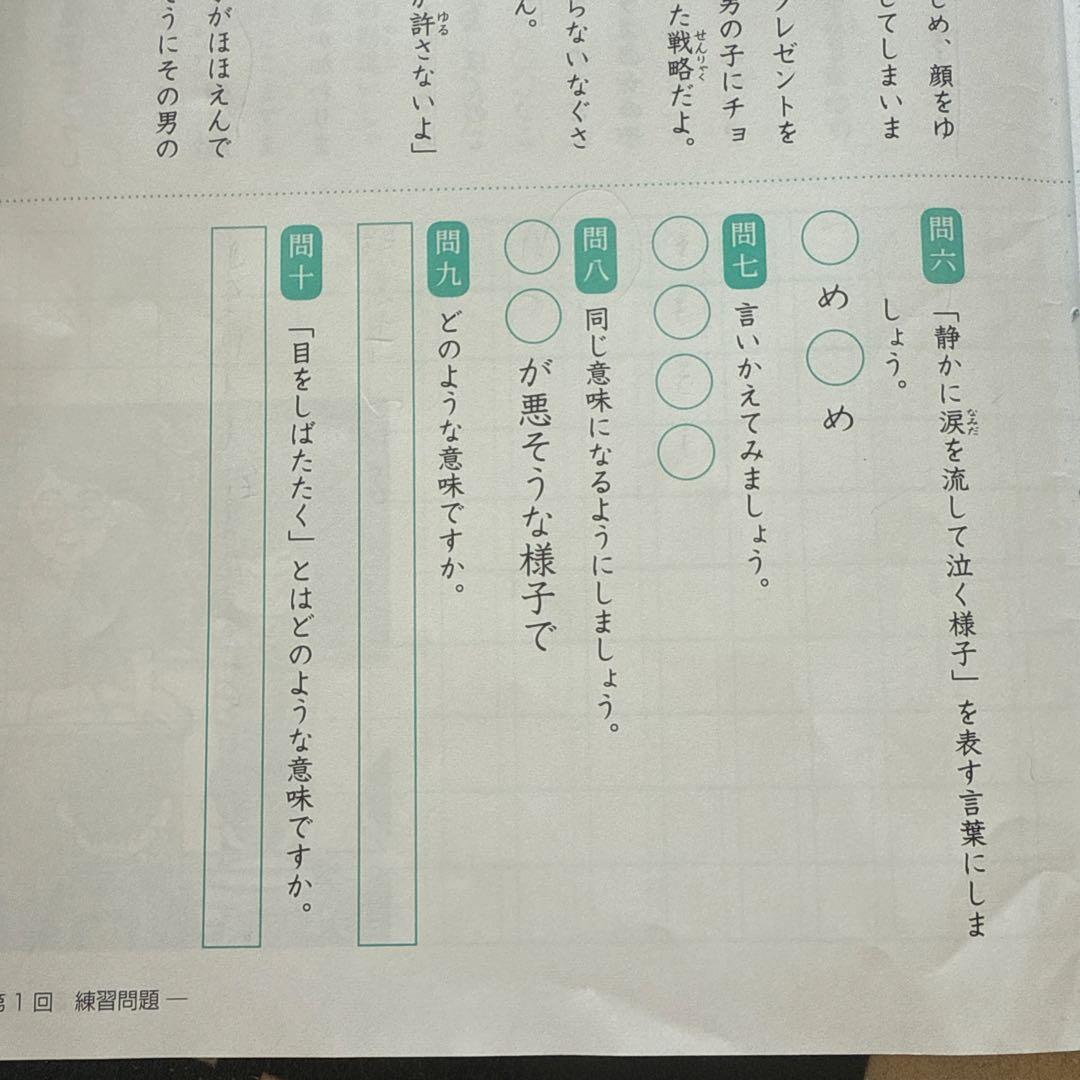 じめ、顔をゆ
してしまいま
プレゼントを
男の子にチョ
た戦略だよ。
せんりゃく
らないなぐさ
ん。
許さないよ」
ゆる
がほほえんで
うにその男の
問六
「静かに涙を流して泣く様子」を表す言葉にしま
なみだ
しょう。
○め○め
問七
言いかえてみましょう。
○○○○
問八
同じ意味になるようにしましょう。
○○が悪そうな様子で
問九
どのような意味ですか。
問十
「目をしばたたく」とはどのような意味ですか。
第1回 練習問題 ―